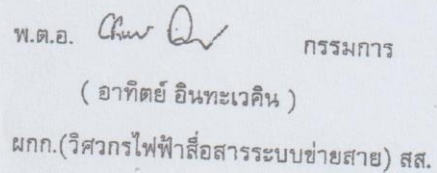 พ.ต.อ. กรรมการ
( อาทิตย์ อินทะเวคิน )
ผกก.(วิศวกรไฟฟ้าสื่อสารระบบข่ายสาย) สส.